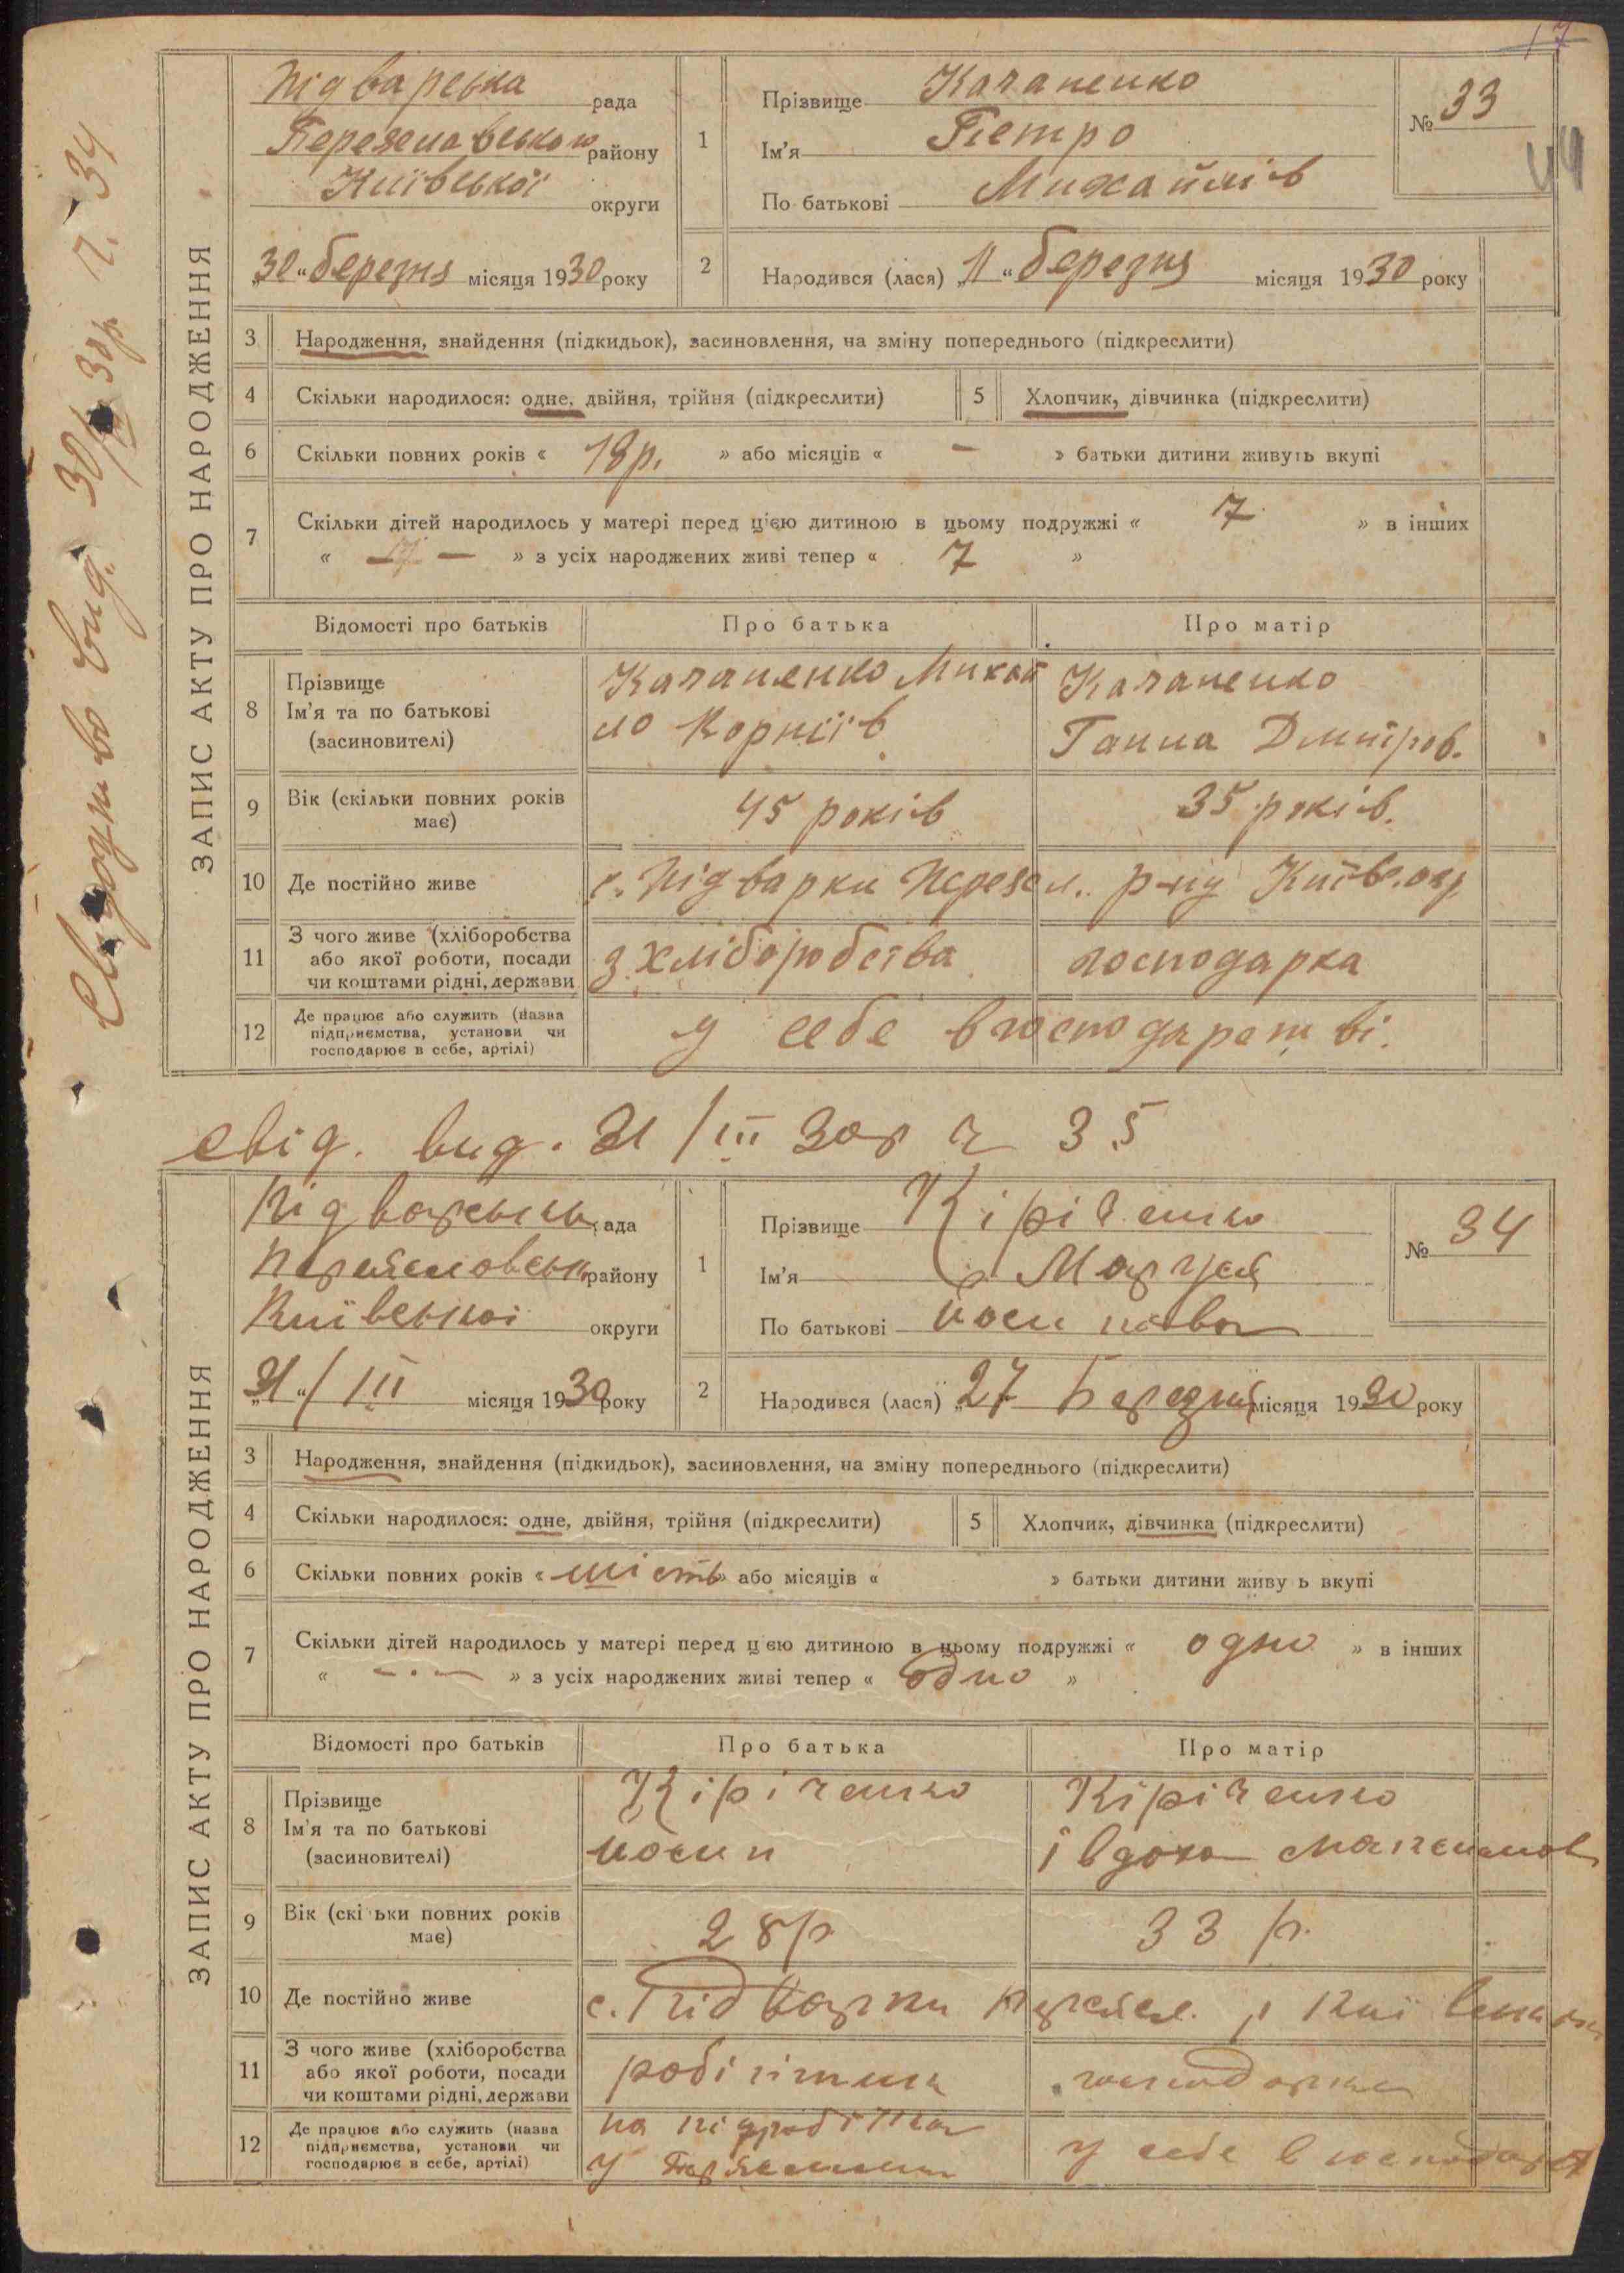 17
ЗАПИС АКТУ ПРО НАРОДЖЕННЯ
Підварська рада
Переяславського району
Київської округи
„30“ березня місяця 1930 року
1
Прізвище Качаненко
Ім'я Петро
По батькові Михайлів
№ 33
2
Народився (лася) „11“ березня місяця 1930 року
3 Народження, знайдення (підкидьок), засиновлення, на зміну попереднього (підкреслити)
4 Скільки народилося: одне, двійня, трійня (підкреслити) 5 Хлопчик, дівчинка (підкреслити)
6 Скільки повних років « 18р. » або місяців « — » батьки дитини живуть вкупі
7 Скільки дітей народилось у матері перед цією дитиною в цьому подружжі « 7 » в інших
« — » з усіх народжених живі тепер « 7 »
Відомості про батьків Про батька Про матір
8 Прізвище
Ім'я та по батькові
(засиновителі)
Качаненко Михай
ло Корніїв
Качаненко
Ганна Дмитров.
9 Вік (скільки повних років
має)
45 років 35 років.
10 Де постійно живе с. Підварки Переясл. р-ну Київс. окр.
11 З чого живе (хліборобства
або якої роботи, посади
чи коштами рідні, держави
з хліборобства господарка
12 Де працює або служить (назва
підприємства, установи чи
господарює в себе, артілі)
у себе в господарстві.
Свідоцтво вид. 30/III 30р. ч. 34
свід. вид. 31/III 30р ч 35
ЗАПИС АКТУ ПРО НАРОДЖЕННЯ
Підварська рада
Переяславськ району
Київської округи
„31“/III місяця 1930 року
1
Прізвище Кіріченко
Ім'я Маруся
По батькові Йосипівна
№ 34
2
Народився (лася) „27 Березня місяця 1930 року
3 Народження, знайдення (підкидьок), засиновлення, на зміну попереднього (підкреслити)
4 Скільки народилося: одне, двійня, трійня (підкреслити) 5 Хлопчик, дівчинка (підкреслити)
6 Скільки повних років « шість » або місяців « » батьки дитини живу ь вкупі
7 Скільки дітей народилось у матері перед цєю дитиною в цьому подружжі « одно » в інших
« — . — » з усіх народжених живі тепер « одно »
Відомості про батьків Про батька Про матір
8 Прізвище
Ім'я та по батькові
(засиновителі)
Кіріченко
Йосип
Кіріченко
Івдоха
9 Вік (скі ьки повних років
має)
28р 33 р.
10 Де постійно живе с. Підварки Переясл. р
11 З чого живе (хліборобства
або якої роботи, посади
чи коштами рідні, держави
робітник господарка
12 Де працює або служить (назва
підприємства, установи чи
господарює в себе, артілі)
на підробітках
у
у себе в господарст